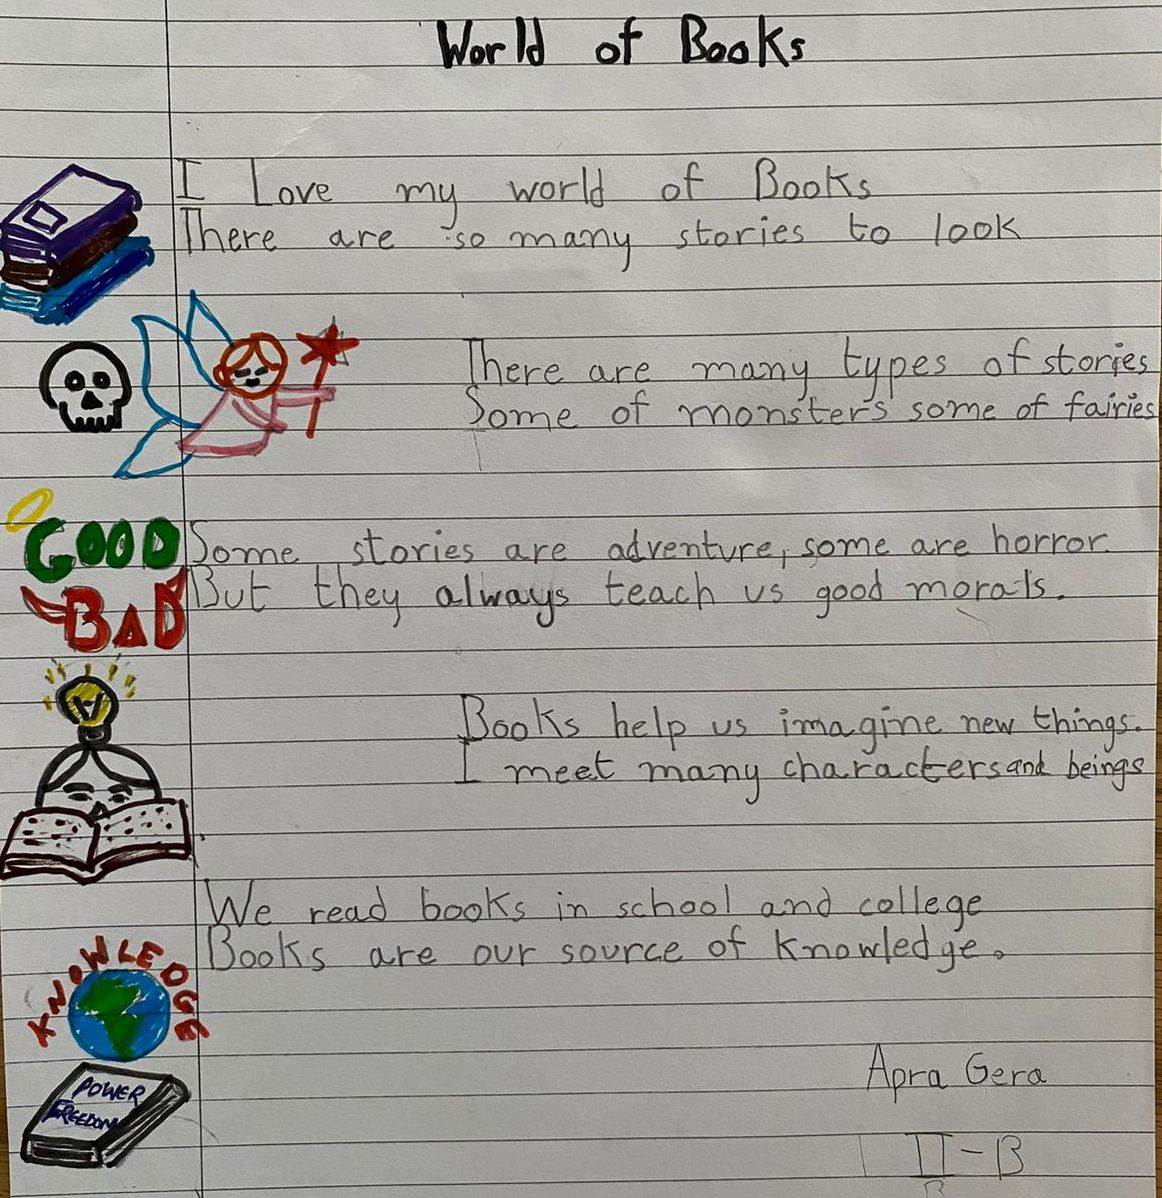 World of Books
I Love my world of Books
There are so many stories to look
There are many types of stories
Some of monsters some of fairies
GOOD
Some stories are adventure, some are horror
BAD
But they always teach us good morals.
Books help us imagine new things.
I meet many characters and beings
We read books in school and college
Books are our source of knowledge.
KNOWLEDGE
Apra Gera
POWER
FREEDOM
II-B
B